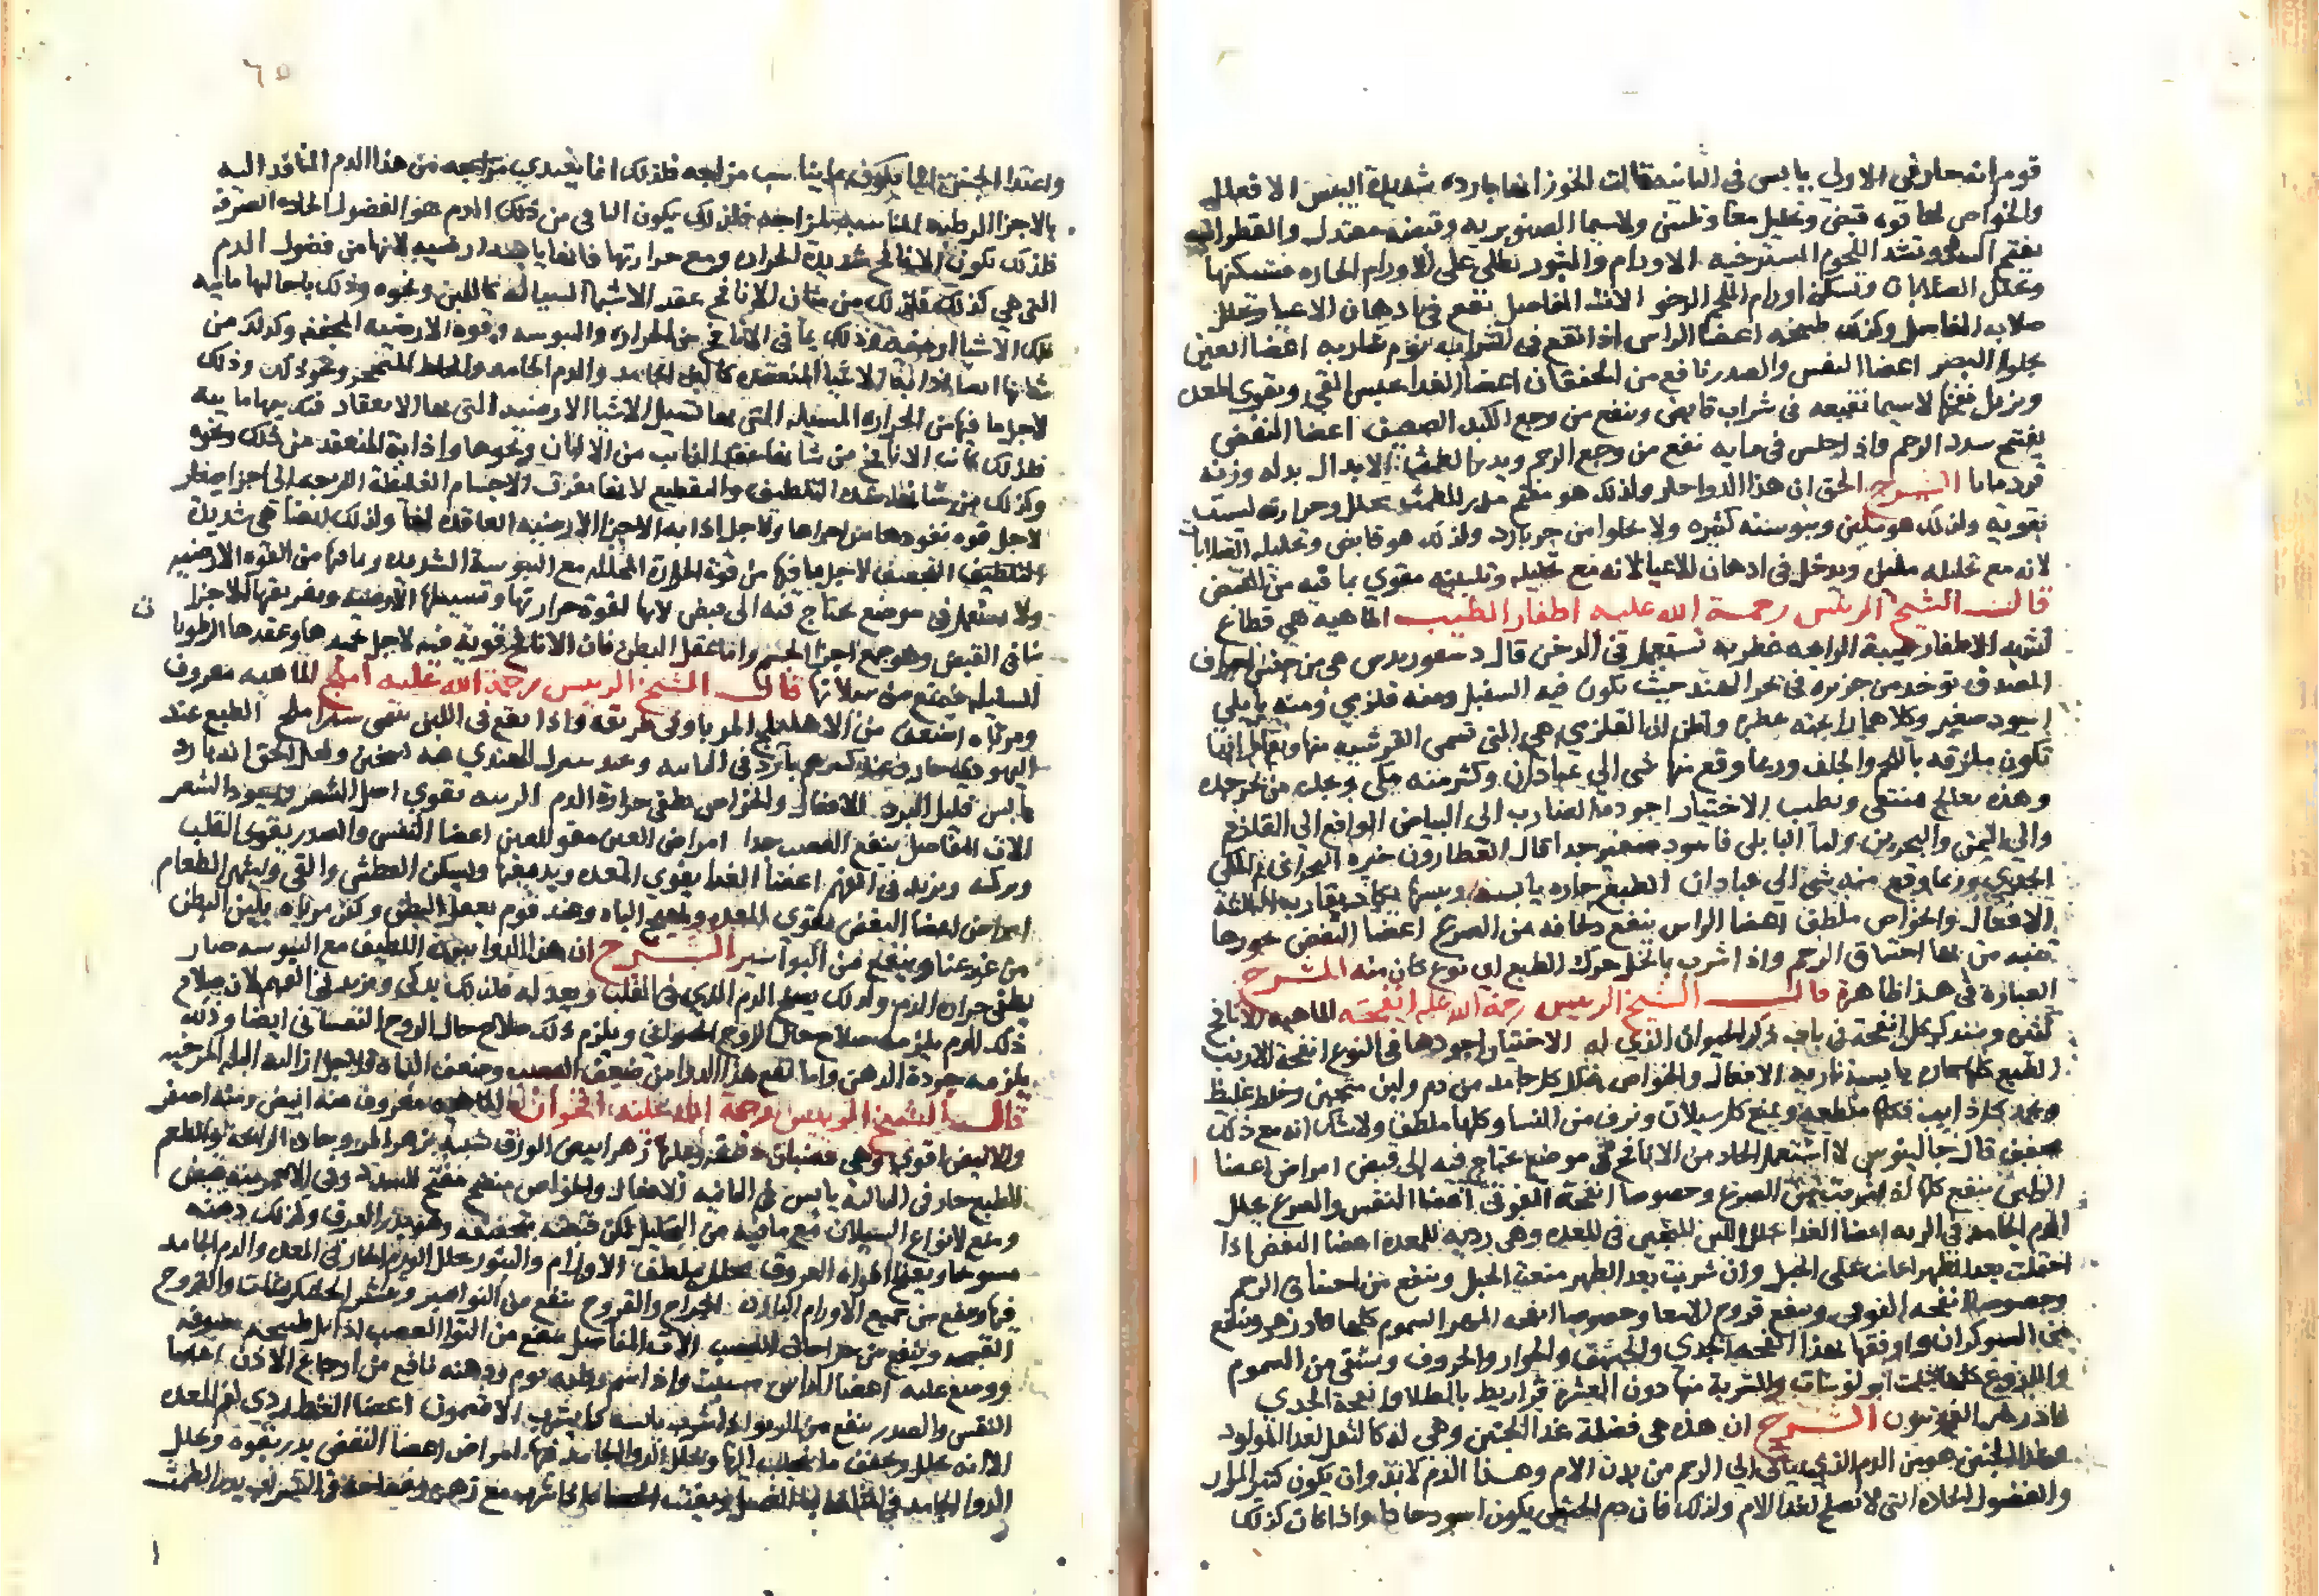 قوم انه حار في الاولى يابس في الثانية قالت الخوز انها باردة شديدة اليبس الافعال
والخواص لها قوة قبض وتحليل معا وتليين ولاسيما الصنوبرية وقبضه معتدل والقطر
يفتح السدد ويشد اللحوم المسترخية الاورام والبثور تطلى على الاورام الحارة فتسكنها
وتحلل الصلابات وتسكن اورام اللحم الرخو الات المفاصل تقع في ادهان الاعيا وتحلل
صلابة المفاصل وكذلك طبيخه اعضا الراس اذا نقع في الشراب نوم شاربه اعضا العين
يجلوا البصر اعضا النفس والصدر نافع من الخفقان اعضا الغذا يحبس القي ويقوي المعدة
ويزيل نفخها لاسيما نقيعه في شراب قابض وينفع من وجع الكبد الضعيف اعضا النفض
يفتح سدد الرحم واذا جلس في مايه نفع من وجع الرحم ويدر الطمث الابدال بدله وزنه
قردمانا الشرح الحق ان هذا الدوا حار ولذلك هو مفتح مدر للطمث محلل وحرارته ليست
بقوية ولذلك هو ملين ويبوسته كثيرة ولا يخلوا من جوهر بارد ولذلك هو قابض وتحليله الصلابات
لانه مع تحليله ملين ويدخل في ادهان الاعيا لانه مع تحليله وتليينه مقوي بما فيه من القبض
قال الشيخ الرئيس رحمة الله عليه اظفار الطيب الماهية هي قطاع
تشبه الاظفار طيبة الرايحة عطرية تستعمل في الدخن قال ديسقوريدس هي من جنس اطراف
الصدف توخذ من جزيرة في بحر الهند حيث يكون فيه السنبل ومنه قلزمي ومنه بابلي
اسود صغير وكلاهما رايحته عطرة واظن ان القلزمي هي التي تسمى القرشية منها ويقال انها
تكون ملتزقة باللحم والجلد وربما وقع منها شي الى عبادان وكثير منه مكي وجده من نحو جده
وهذه تعالج فتنقى وتطيب الاختيار اجوده الضارب الى البياض الواقع الى القلزم
والى اليمن والبحرين واما البابلي فاسود صغير جدا قال العطارون خيره البحراني ثم المكي
الجدي وربما وقع منه شي الى عبادان الطبع حارة يابسة ويبسها يكاد يقارب الثالثة
الافعال والخواص ملطف اعضا الراس ينفع دخانه من الصرع اعضا النفض بخورها
تنبه من بها اختناق الرحم واذا شرب بالخل حرك الطبع اي نوع كان منه الشرح
العبارة في هذا ظاهرة قال الشيخ الرئيس رحمة الله عليه انفحة الماهية الانافح
كثيرة وسنذكر كل انفحة في باب ذكر الحيوان الذي له الاختيار اجودها في النوع انفحة الارنب
الطبع كلها حارة يابسة نارية الافعال والخواص تحلل كل جامد من دم ولبن متجبن وخلط غليظ
وتجمد كل ذايب فكلها مقطعة وتمنع كل سيلان ونزف من النسا وكلها ملطف ولا شك انه مع ذلك
مجفف قال جالينوس لا استعمل الحاد من الانافح في موضع يحتاج فيه الى قبض امراض اعضا
الراس ينفع كلها اذا شربت من الصرع وخصوصا انفحة القوفي اعضا النفس والصدر يحلل
الدم الجامد في الرية اعضا الغذا تحلل اللبن المتجبن في المعدة وهي ردية للمعدة اعضا النفض اذا
احتملت بعد الطهر اعانت على الحبل وان شربت بعد الطهر منعت الحبل وينفع من اختناق الرحم
وخصوصا انفحة القوفي وينفع قروح الامعا وخصوصا انفحة المهر السموم كلها فادزهر وينفع
من الشوكران واوفقها لهذا انفحة الجدي والخشف والحوار والخروف ويسقى من السموم
واللذوع كلها ثلث ابولوسات والشربة منها دون العشرة قراريط بالطلا وانفحة الجدي
فادزهر الفربيون الشرح ان هذه هي فضلة غذا الجنين وهي له كالثفل لغذا المولود
وغذا الجنين هو من الدم الذي ياتي الى الرحم من بدن الام وهذا الدم لابد وان يكون كثير المرار
والفضول الحادة التي لا تصلح لغذا الام ولذلك فان دم الحيض يكون اسود حادا واذا كان كذلك
٦٥
واغتذا الجنين انما يكون بما يناسب مزاجه فلذلك انما يغتدي مزاجه من هذا الدم النافذ اليه
بالاجزا الرطبة المناسبة لمزاجه فلذلك يكون الباقي من ذلك الدم هو الفضول الحادة الصرفة
فلذلك تكون الانافح شديدة الحرارة ومع حرارتها فانها يابسة ارضية لانها من فضول الدم
التي هي كذلك فلذلك من شان الانافح عقد الاشيا السيالة كاللبن ونحوه وذلك باحالتها مايية
تلك الاشيا ارضية وذلك بما في الانافح من الحرارة واليبوسة وقوة الارضية المجففة وكذلك من
شانها ايضا اذابة الاشيا المنعقدة كاللبن الجامد والدم الجامد والخلط المتحجر ونحو ذلك وذلك
لاجل ما فيها من الحرارة المسيلة التي بها تسيل الاشيا الارضية التي بها الانعقاد فتصيرها مايية
فلذلك كانت الانافح من شانها عقد الذايب من الالبان ونحوها واذابة المنعقد من ذلك ونحوه
وكذلك من شانها شدة التلطيف والتقطيع لانها تفرق الاجسام الغليظة اللزجة الى اجزا صغار
لاجل قوة نفوذها من اجزاها ولاجل اذابة الاجزا الارضية العاقدة لها ولذلك ايضا هي شديدة
التلطيف التجفيف لاجل ما فيها من قوة الحرارة المحللة مع اليبوسة الشديدة وما فيها من القوة الارضية
ولا يستعمل في موضع يحتاج فيه الى قبض لانها لقوة حرارتها وتسييلها الارضية وتفريقها للاجزا
ينافي القبض وهو جمع اجزا الجسم واما عقل البطن فان الانافح قوية فيه لاجل تجميدها وعقدها الرطوبات
السيالة فتمنع من سيلانها قال الشيخ الرئيس رحمة الله عليه املج الماهية معروف
ومرباه اضعف من الاهليلج المربا وفي طريقه واذا نقع في اللبن يسمى شير املج الطبع عند
اليهودي حار وعند كثيرهم بارد في الثانية وعند شرك الهندي فيه تسخين ولعل الحق انه بارد
يابس قليل البرد الافعال والخواص يطفي حرارة الدم الزينة يقوي اصل الشعر ويسود الشعر
الات المفاصل ينفع العصب جدا امراض العين مقو للعين اعضا النفس والصدر يقوي القلب
ويذكيه ويزيد في الفهم اعضا الغذا يقوي المعدة ويدبغها ويسكن العطش والقي ويشهي الطعام
امراض اعضا النفض يقوي المعدة ويهيج الباه وعند قوم يعقل البطن وكذا مرباه يلين البطن
من غير عنا وينفع من البواسير الشرح ان هذا الدوا ببرده اللطيف مع اليبوسة صار
يطفي حرارة الدم ولذلك يصلح الدم الذي في القلب ويعدله فلذلك يذكي ويزيد في الفهم لان صلاح
ذلك الدم يلزمه صلاح حال الروح الحيواني ويلزم ذلك صلاح حال الروح النفساني ايضا وذلك
يلزمه جودة الذهن وانما نفع هذا الدوا من ضعف العصب وضعف الباه لاجل ازالته البلة المرخية
قال الشيخ الرئيس رحمة الله عليه اقحوان الماهية معروف منه ابيض ومنه اصفر
والابيض اقوى وهي قضبان دقيقة عليها زهر ابيض الورق شبيه بزهر المرو حاد الرايحة والطعم
الطبع حار في الثالثة يابس في الثانية الافعال والخواص منضج مفتح للسدد وفي الاحمر منه قبض
ومنع لانواع السيلان مع ما فيه من التحليل لكن قبضه وتجفيفه وهو يدر العرق وكذلك دهنه
مسوحا ويفتح افواه العروق محلل ملطف الاورام والبثور يحلل الورم الحار في المعدة والدم الجامد
فيها وينفع من جميع الاورام الباردة الجراح والقروح ينفع من النواصير ويقشر الخشكريشات والقروح
الخبيثة وينفع من جراحات العصب الات المفاصل ينفع من التوا العصب اذا بل طبيخه صوفة
ووضع عليه اعضا الراس مسبت واذا شم رطبه نوم ودهنه نافع من اوجاع الاذن اعضا
النفس والصدر ينفع من الربو اذا شرب يابسه كما يشرب الافثيمون اعضا الغذا ردي لفم المعدة
الا انه يحلل ويجفف ما يتحلب اليها ويحلل الدم الجامد فيها امراض اعضا النفض يدر بقوة ويحلل
الدم الجامد في المثانة